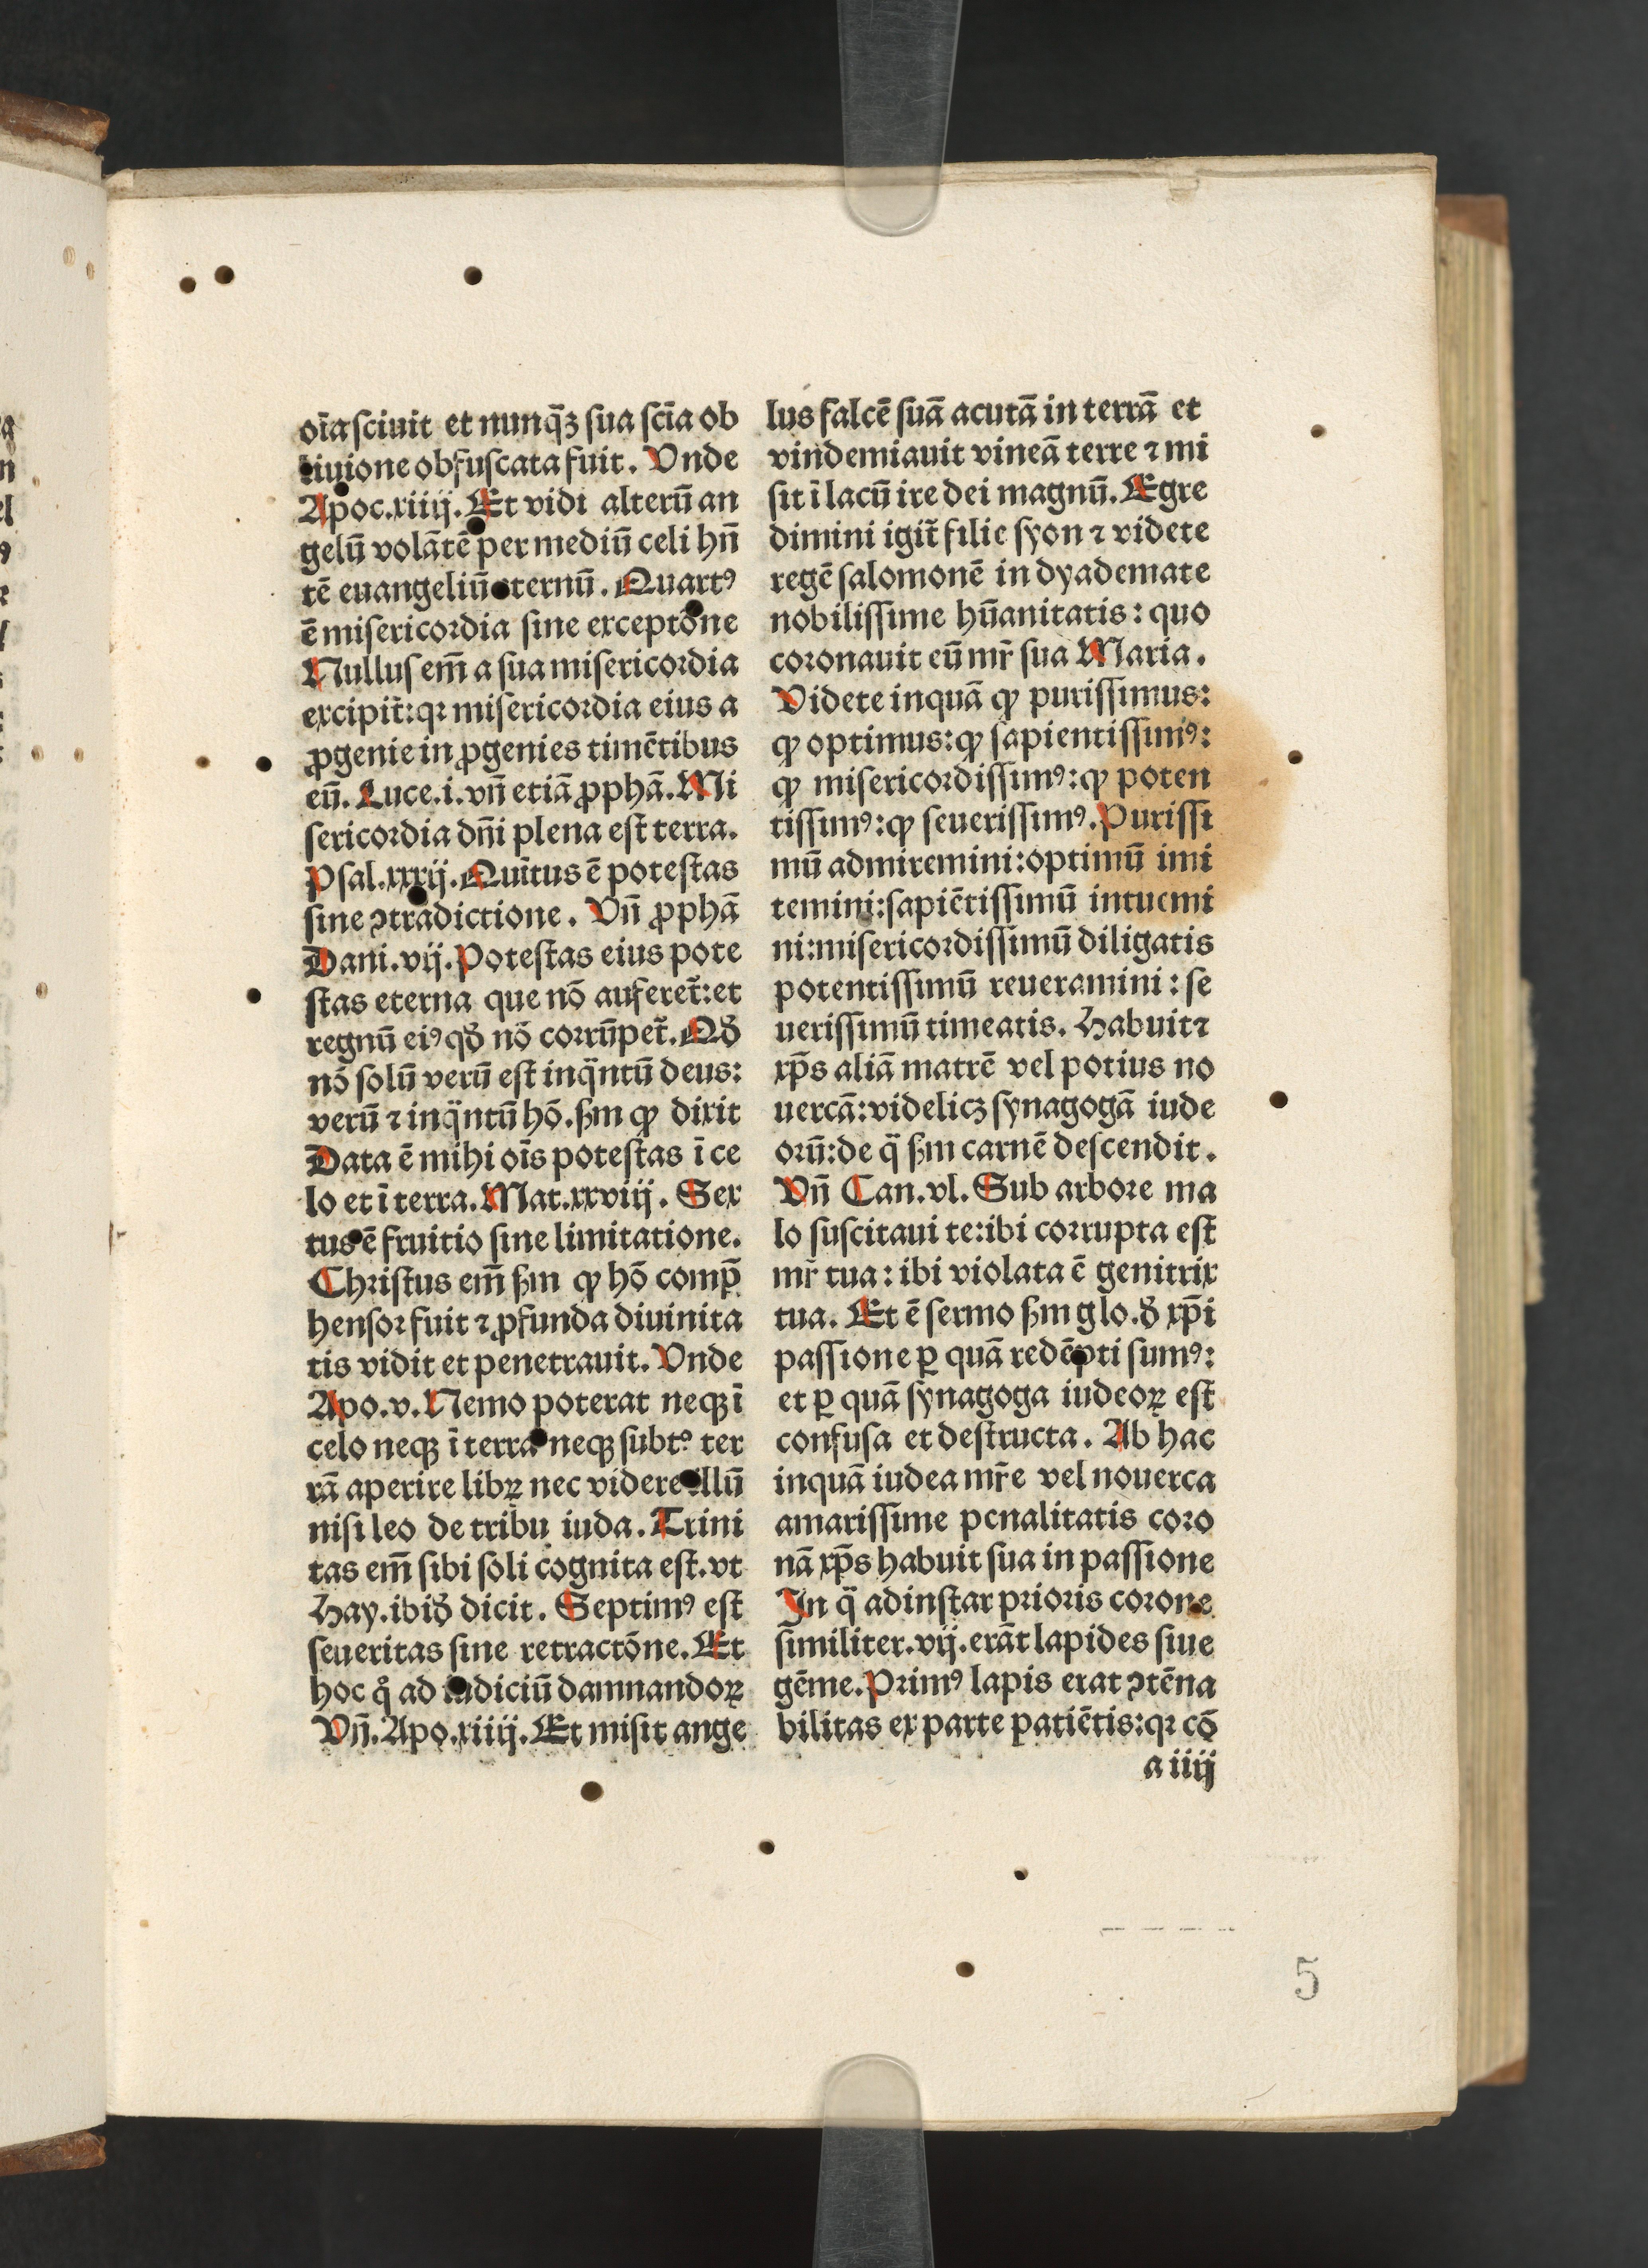 oīa sciuit et nunq̄ꝫ sua scīa ob
liuione obfuscata fuit. Vnde
Apoc.xiiij. Et vidi alterū an
gelū volātē per mediū celi hn̄
tē euangeliū eternū. Quartꝰ
ē misericordia sine exceptōne
Nullus em̄ a sua misericordia
excipit̄: qꝛ misericordia eius a
ꝓgenie in ꝓgenies timētibus
eū. Luce.i. vn̄ etiā ꝓphā. Mi
sericordia dn̄i plena est terra.
Psal.xxxij. Quītus ē potestas
sine ꝯtradictione. Vn̄ ꝓphā
Dani.vij. Potestas eius pote
stas eterna que nō auferet̄: et
regnū eiꝰ qđ nō corrūpet̄. Qđ
nō solū verū est inq̄ntū deus:
verū ⁊ inq̄ntū hō. ẜm ꝙ dixit
Data ē mihi oīs potestas ī ce
lo et ī terra. Mat.xxviij. Sex
tus ē fruitio sine limitatione.
Christus em̄ ẜm ꝙ hō comp̄
hensor fuit ⁊ ꝓfunda diuinita
tis vidit et penetrauit. Vnde
Apo.v. Nemo poterat neqꝫ ī
celo neqꝫ ī terra neqꝫ subtꝰ ter
rā aperire libꝝ nec videre illū
nisi leo de tribu iuda. Trini
tas em̄ sibi soli cognita est. vt
Hay. ibiđ dicit. Septimꝰ est
seueritas sine retractōne. Et
hoc qͦ ad iudiciū damnandoꝝ
Vn̄. Apo.xiiij. Et misit ange
lus falcē suā acutā in terrā et
vindemiauit vineā terre ⁊ mi
sit ī lacū ire dei magnū. Egre
dimini igit̄ filie syon ⁊ videte
regē salomonē in dyademate
nobilissime hūanitatis: quo
coronauit eū mr̄ sua Maria.
Videte inquā ꝙ purissimus:
ꝙ optimus: ꝙ sapientissimꝰ:
ꝙ misericordissimꝰ: ꝙ poten
tissimꝰ: ꝙ seuerissimꝰ. Purissi
mū admiremini: optimū imi
temini: sapiētissimū intuemi
ni: misericordissimū diligatis
potentissimū reueramini: se
uerissimū timeatis. Habuit ⁊
xp̄s aliā matrē vel potius no
uercā: videlicꝫ synagogā iude
orū: de q̄ ẜm carnē descendit.
Vn̄ Can.vl. Sub arbore ma
lo suscitaui te: ibi corrupta est
mr̄ tua: ibi violata ē genitrix
tua. Et ē sermo ẜm glo. đ xp̄i
passione ꝑ quā redēpti sumꝰ:
et ꝑ quā synagoga iudeoꝝ est
confusa et destructa. Ab hac
inquā iudea mr̄e vel nouerca
amarissime penalitatis coro
nā xp̄s habuit sua in passione
In q̄ ad instar prioris corone
similiter.vij. erāt lapides siue
gēme. Primꝰ lapis erat ꝯtēna
bilitas ex parte patiētis: qꝛ cō
a iiij
5